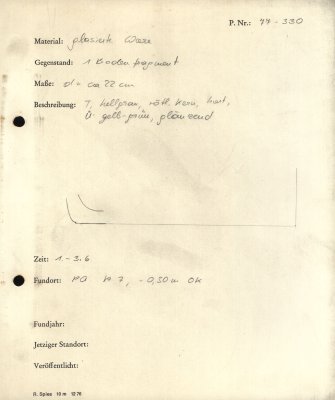 P. Nr.: 77 - 330
Material: glasierte Ware
Gegenstand: 1 Bodenfragment
Maße: d = ca 22 cm
Beschreibung: T, hellgrau, rötl. Kern, hart,
Ü. gelb-grün, glänzend
Zeit: 1 - 3.6
Fundort: PA 7, -0,50 m OK
Fundjahr:
Jetziger Standort:
Veröffentlicht:
R. Spies 10 m 12 76